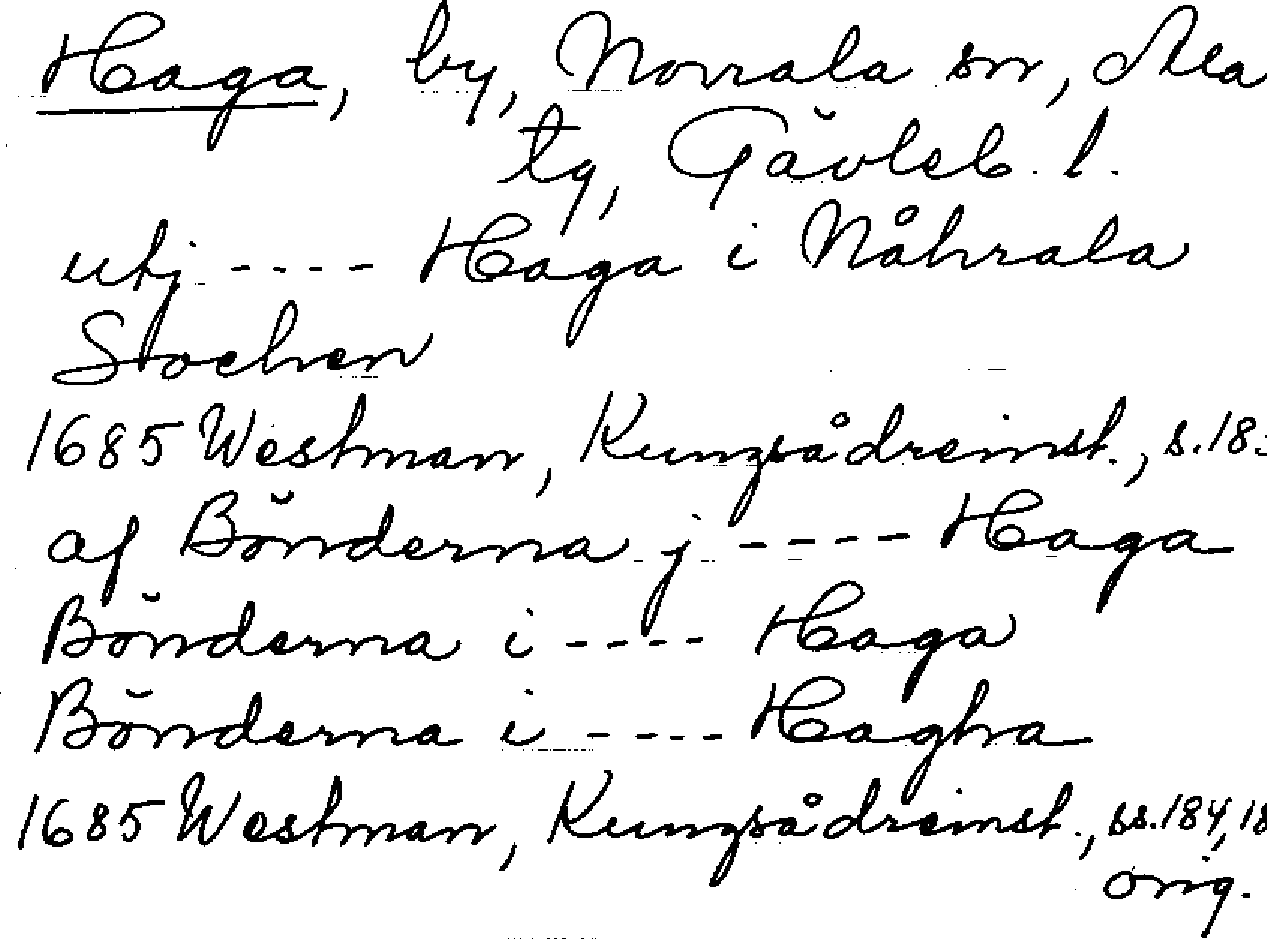 Haga, by, Norrala sn, Ala
tg, Gävleb. l.
utj ---- Haga i Nåhrala
Sochen
1685 Westman, Kungsådreinst., s.18
af Bönderna j ---- Haga
Bönderna i ---- Haga
Bönderna i ---- Hagha
1685 Westman, Kungsådreinst., ss.184, 18
orig.